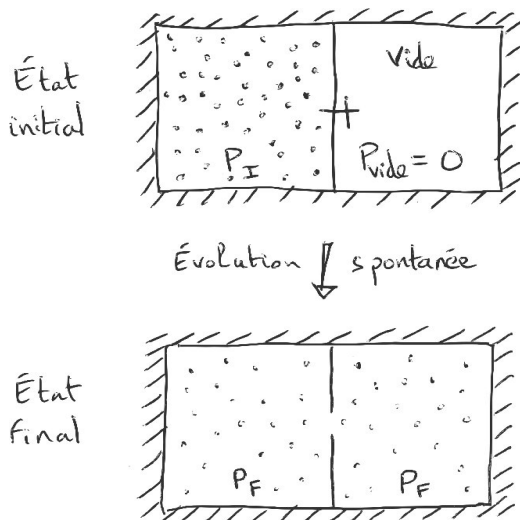 État
initial
vide
P_I
P_vide = 0
Évolution spontanée
État
Final
P_F
P_F